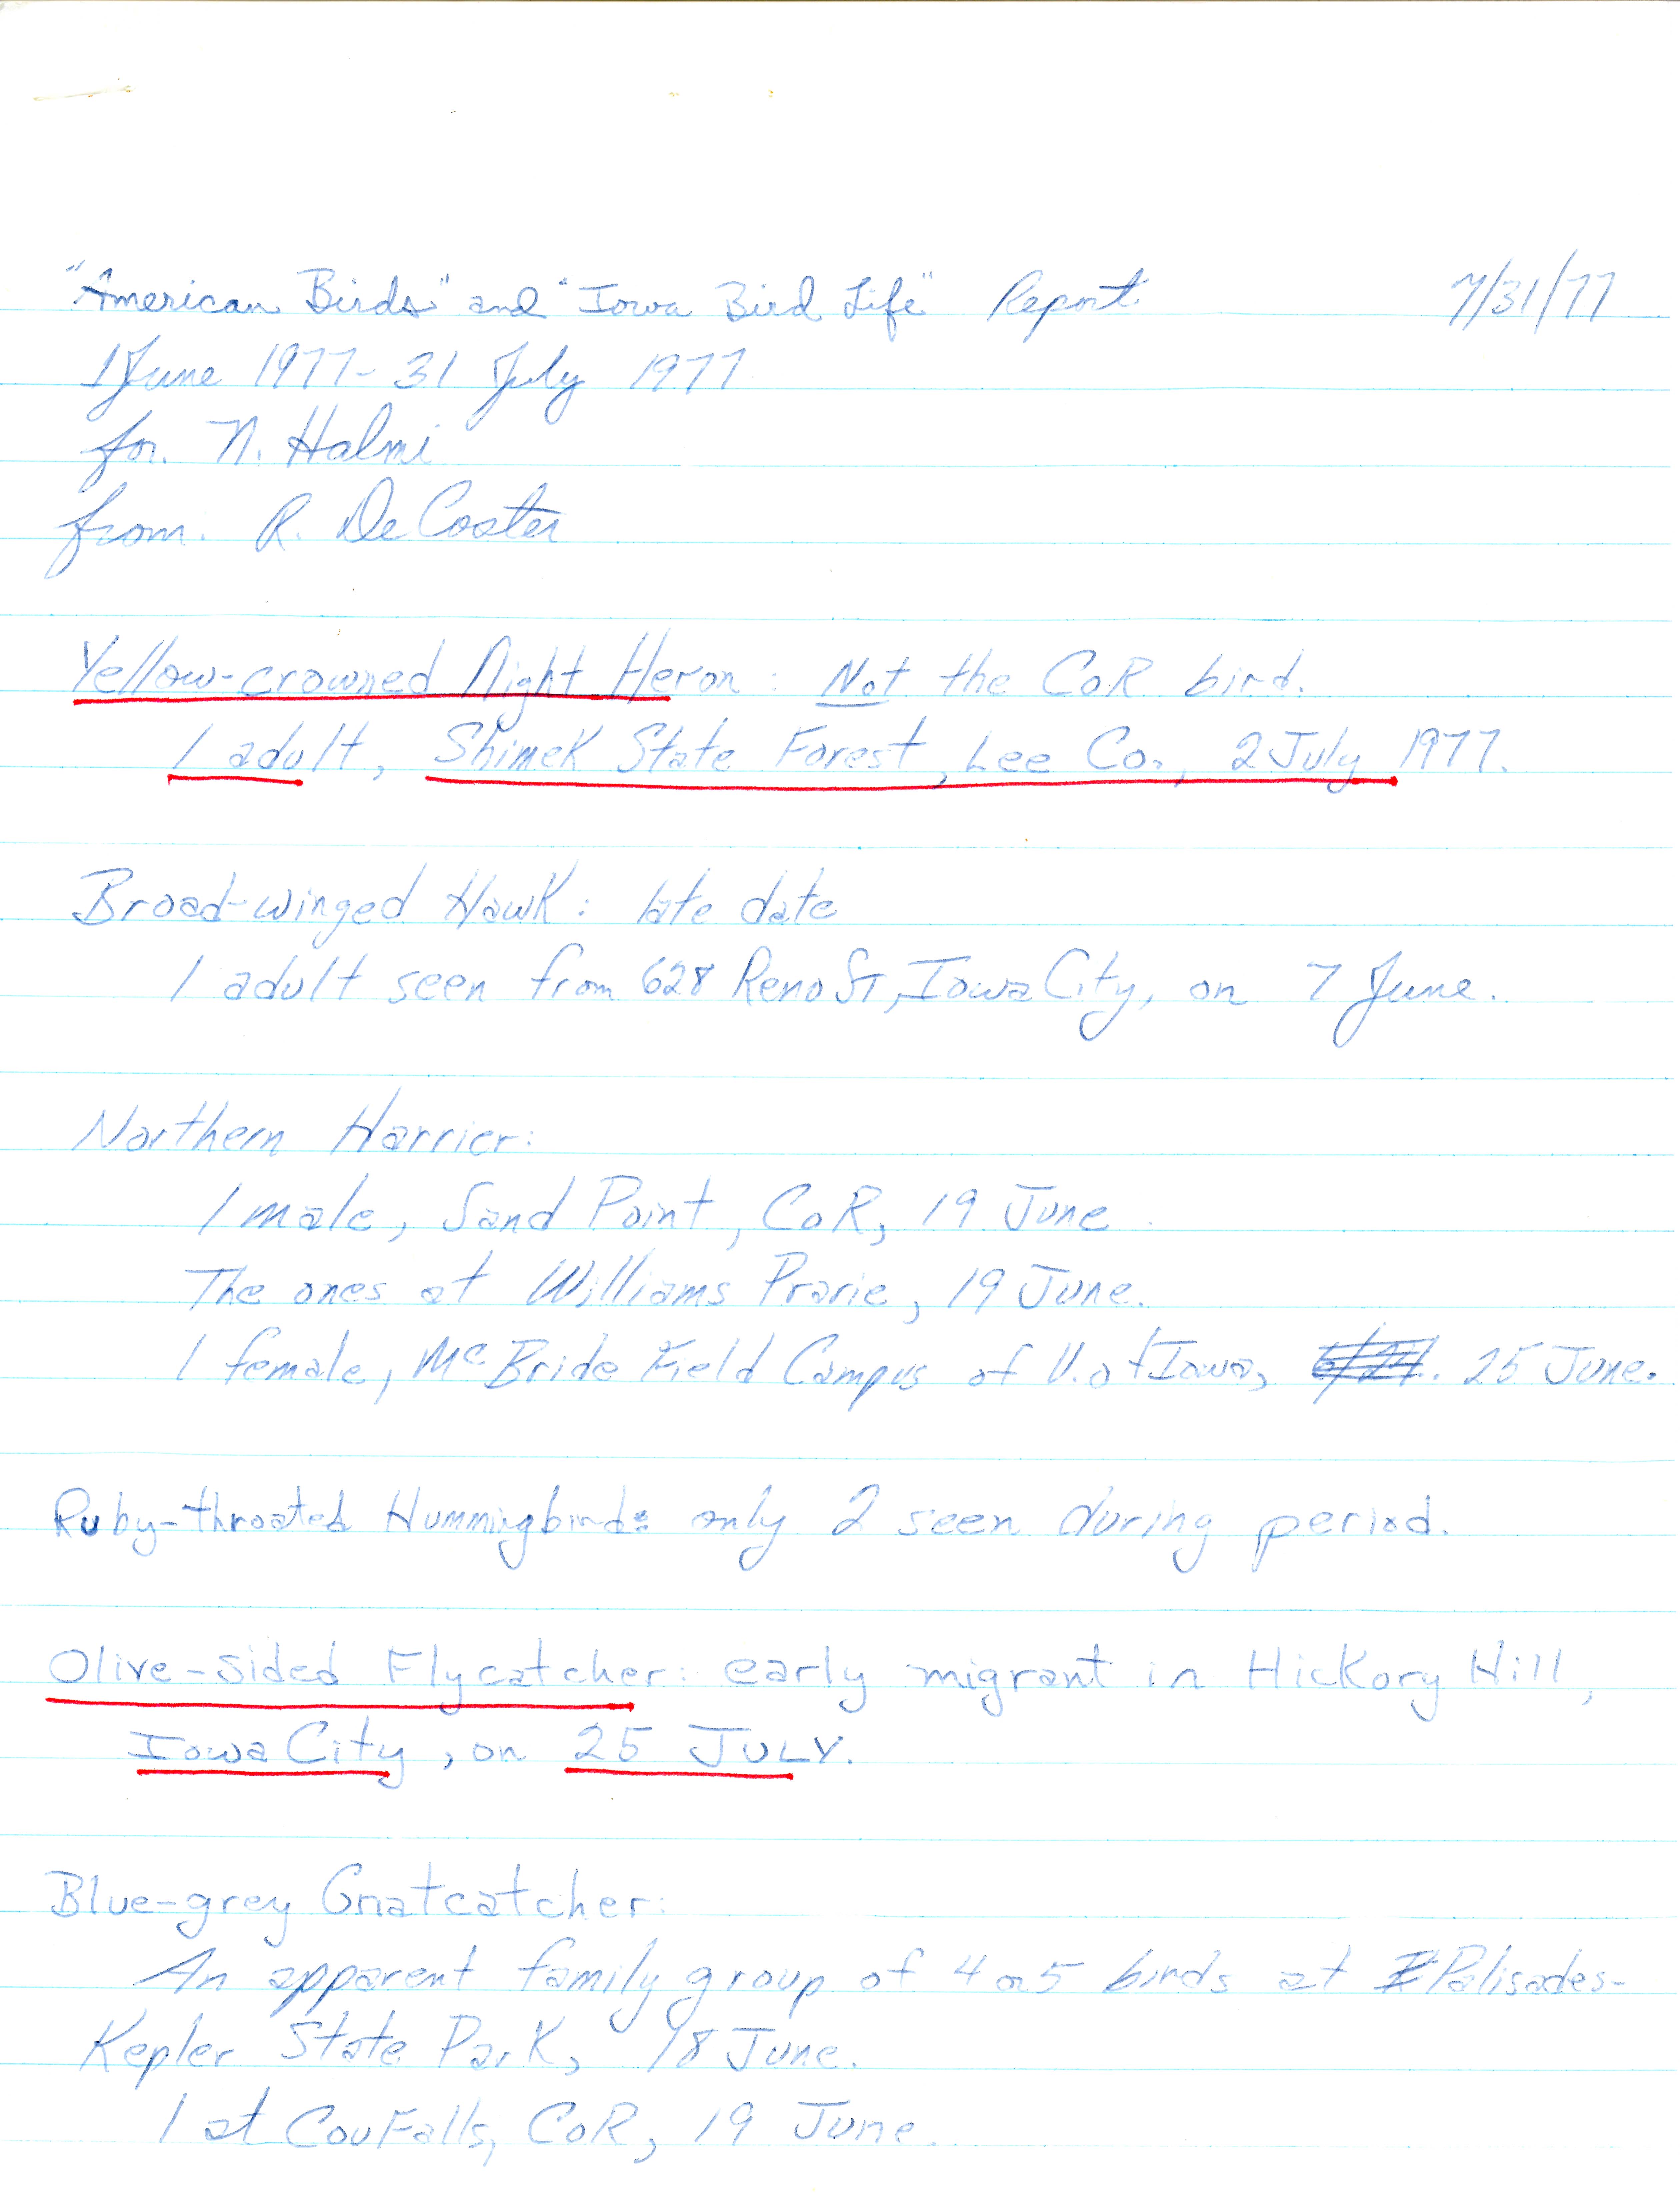 "American Birds" and "Iowa Bird Life" Report 7/31/77
1 June 1977 - 31 July 1977
for. N. Halmi
from. R. DeCoster
Yellow-crowned Night Heron: Not the CoR bird.
1 adult, Shimek State Forest, Lee Co., 2 July 1977.
Broad-winged Hawk: late date
1 adult seen from 628 Reno St, Iowa City, on 7 June.
Northern Harrier:
1 male, Sand Point, CoR, 19 June
The ones at Williams Prarie, 19 June.
1 female, McBride Field Campus of U. of Iowa, 25 June.
Ruby-throated Hummingbird: only 2 seen during period.
Olive-sided Flycatcher: early migrant in Hickory Hill,
Iowa City, on 25 JULY.
Blue-grey Gnatcatcher:
An apparent family group of 4 or 5 birds at Palisades-
Kepler State Park, 18 June.
1 at Cou Falls, CoR, 19 June.